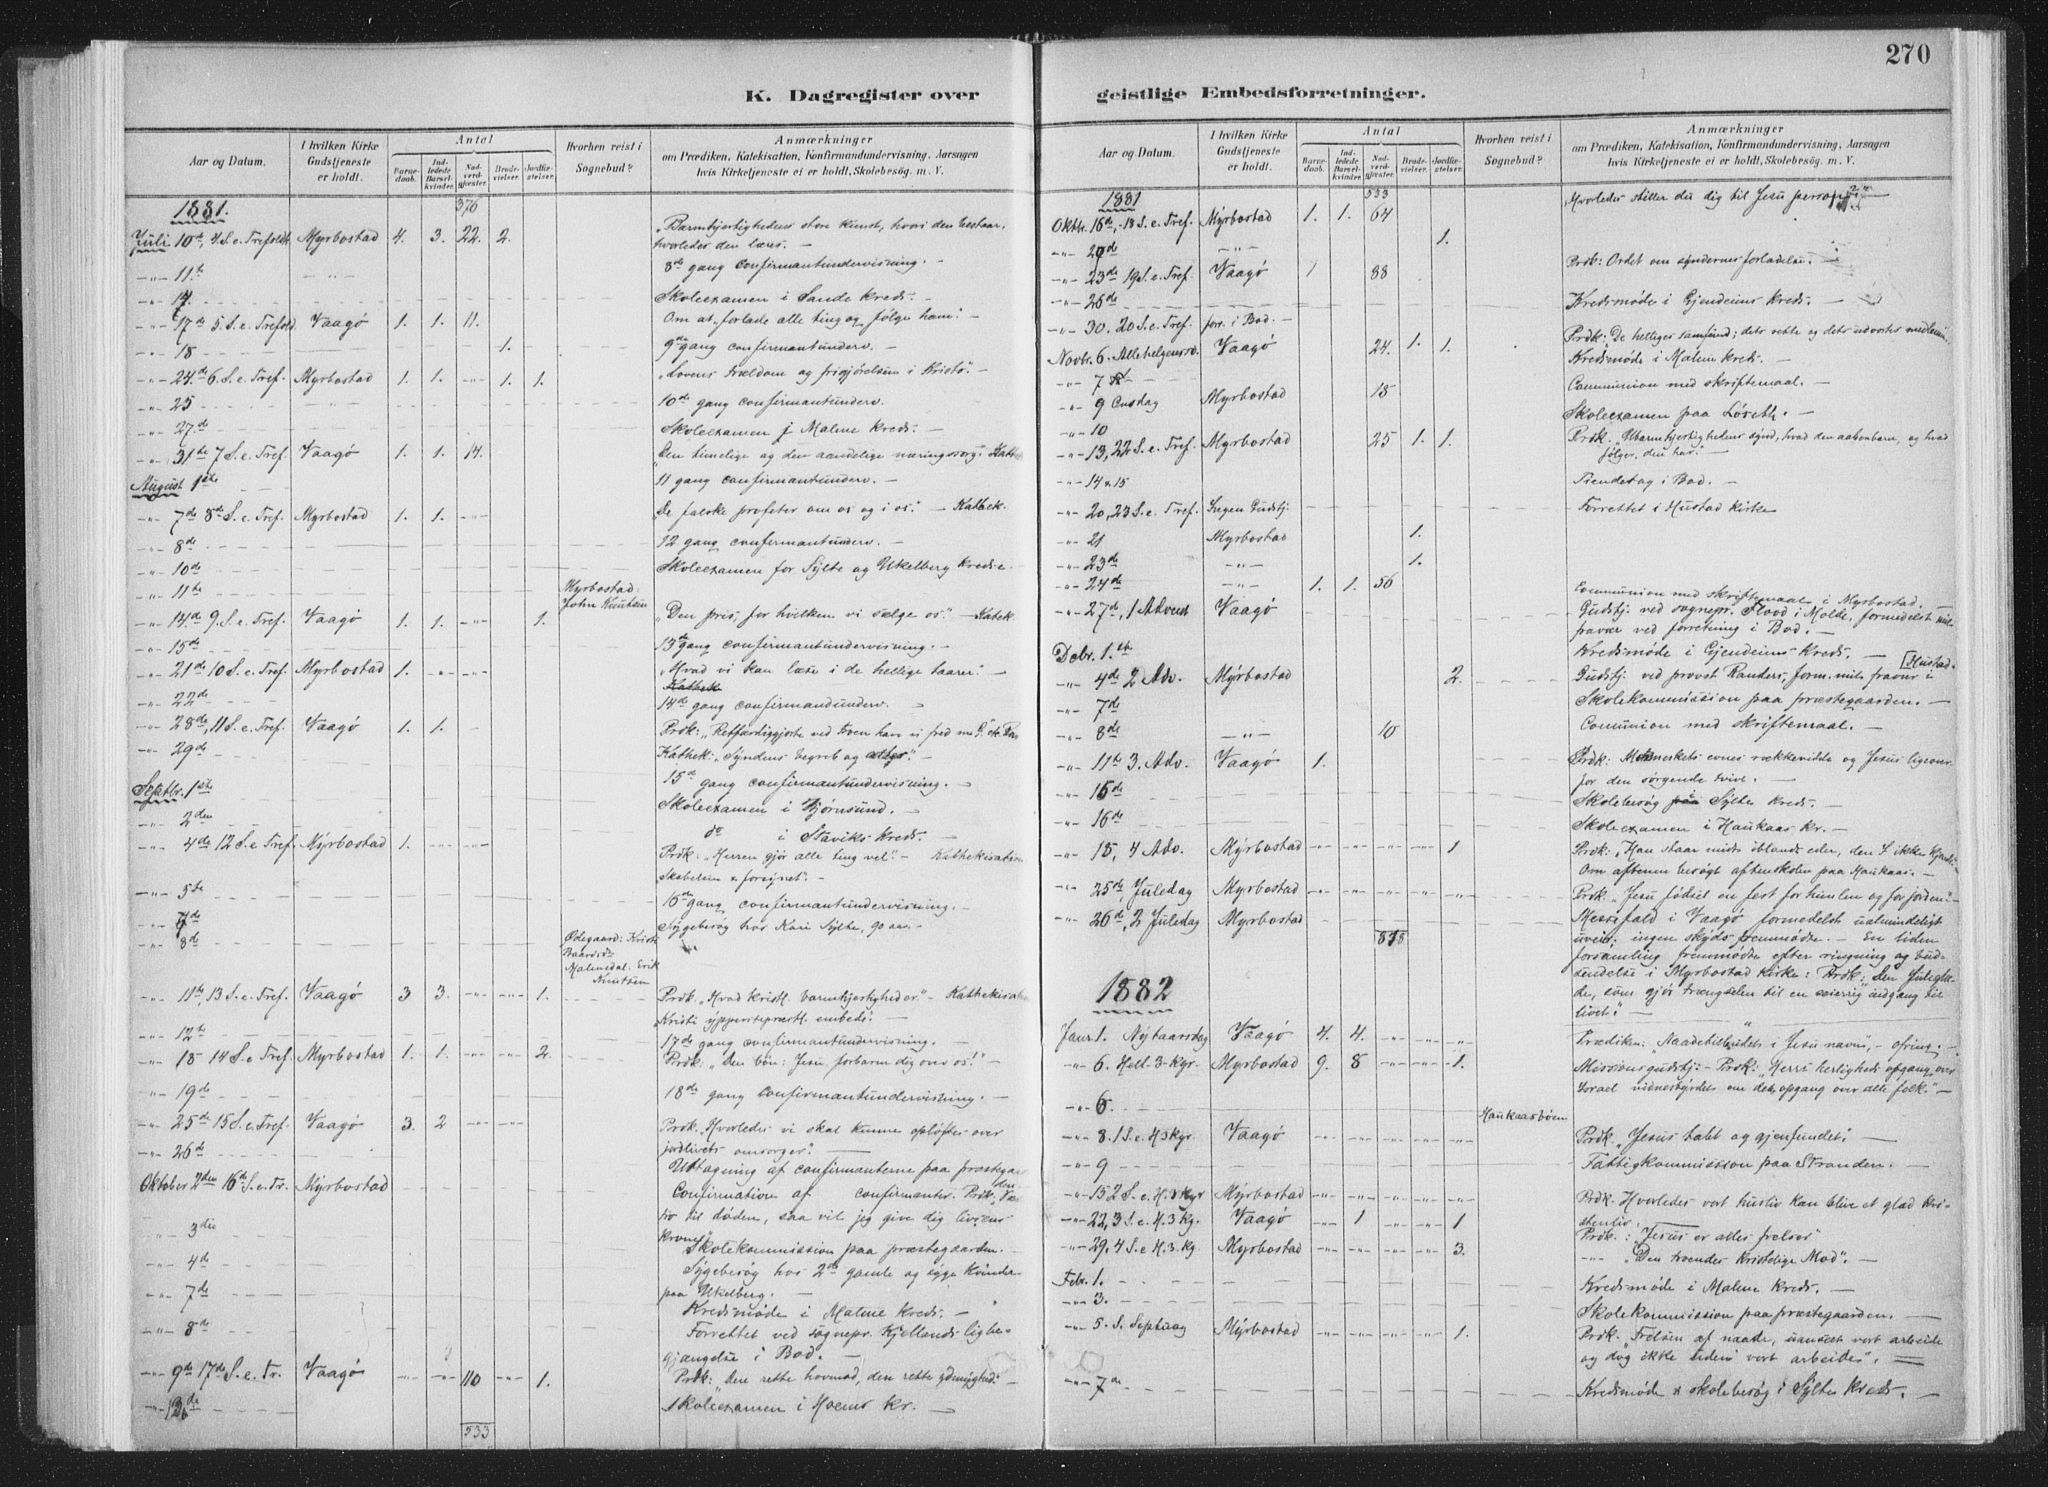 K. Dagregister over
Aar og Datum. I hvilken Kirke Gudstjeneste er holdt. Antal Barnedaab. Indledede Barselkvinder. Nadverdgjæster. Brudevielser. Jordfæstelser. Hvorhen reist i Sognebud? Anmærkninger om Prædiken, Katekisation, Konfirmandundervisning, Aarsagen hvis Kirketjeneste ei er holdt, Skolebesøg. m. V.
1881. 376
Juli 10de, 4. S. e. Trefoldt. Myrbostad 4. 3. 22. 2. "Barmhjertighedens store Kunst, hvori den bestaar, hvorledes den læres. -
-"- 11te -"- 8de gang confirmantundervisning. -
-"- 14. Skoleexamen i Sande Kreds. -
-"- 17de 5. S. e. Trefold. Vaagø 1. 1. 11. Om at "forlade alle ting og følge ham." -
-"- 18 1. 9de gang confirmantunderv.
-"- 24de 6 S. e. Tref. Myrbostad 1. 1. -"- 1. 1. "Lovens trældom og frigjørelsen i Kristo." -
-"- 25 10de gang confirmantunderv.
-"- 27de Skoleexamen i Malme Kreds. -
-"- 31te 7 S. e. Tref. Vaagø 1. 1. 14. "Den timelige og den aandelige næringssorg." Kathek.
August 1ste 11 gang confirmantunderv. -
-"- 7de 8de S. e. Tref. Myrbostad 1. 1. -"- "De falske profeter om os og i os." - Kathek.
-"- 8de 12 gang confirmantunderv. -
-"- 10de Skoleexamen for Sylte og Ukelberg Kredse.
-"- 11te Myrbostad: John Knutsen
-"- 14de 9. S. e. Tref. Vaagø 1. 1. -"- 1. "Den pris, for hvilken vi sælge os." - Katek.
-"- 15de 13de gang confirmantundervisning. -
-"- 21de 10 S. e. Tref. Myrbostad 1. -"- -"- "Hvad vi kan læse i de hellige taarer." -
Kathek
-"- 22de 14de gang confirmandunderv.
-"- 28de, 11 S. e. Tref. Vaagø 1. 1. Prdk: "Retfærdiggjorte ved troen have vi fred m. G.
-"- 29de Kathek: "Syndens begreb og
15de gang confirmantundervisning. -
Septbr. 1ste Skoleexamen i Bjørnsund. -
-"- 2den do i Staviks Kreds. -
-"- 4de 12 S. e. Tref. Myrbostad 1. -"- -"- Prdk: "Herren gjør alle ting vel." - Kathekisation
Skabelsen & forsynet". -
-"- 5te 16de gang confirmantundervisning. -
-"- 7de Sygebesøg hos Kari Sylte, 90 aar. -
-"- 8de Ødegaard: Baardsdr Malmedal: Erik Knutsen
-"- 11te, 13 S. e. Tref. Vaagø 3 3. -"- -"- 1. Prdk. "Hvad kristl. barmhjertighed er." - Kathekisation
"Kristi ypperstepræstl. embede". -
-"- 12te 17de gang confirmantundervisning. -
-"- 18 14 S. e. Tref. Myrbostad 1. 1. -"- -"- 2. Prdk: "Den bøn: Jesu, forbarm dig over os!" -
-"- 19de 18de gang confirmantundervisning. -
-"- 25de 15 S. e. Tref. Vaagø 3. 2 -"- -"- Prdk: "Hvorledes vi skal kunne opløftes over
jordlivets omsorger." -
-"- 26de Udtagning af confirmanterne paa præstegaarden.
Oktober 2den 16de S. e. Tr. Myrbostad Confirmation af confirmanter. Prdk: "Vær
tro til døden, saa vil jeg give dig livsens
krone."
-"- 3die Skolekommission paa præstegaarden. -
-"- 4de Sygebesøg hos 2de gamle og syge Kvinder
paa Ukelberg. -
-"- 7de Kredsmøde i Malme Kreds. -
-"- 8de Forrettet ved sognepr. Kjellands ligbe-
gjængelse i Bod. -
-"- 9de 17de S. e. Tr. Vaagø -"- -"- 110 -"- 1. Prdk: "Den rette hovmod, den rette ydmyghed." -
Skoleexamen i Hoems kr. -
533
270
geistlige Embedsforretninger.
Aar og Datum. I hvilken Kirke Gudstjeneste er holdt. Antal Barnedaab. Indledede Barselkvinder. Nadverdgjæster. Brudevielser. Jordfæstelser. Hvorhen reist i Sognebud? Anmærkninger om Prædiken, Katekisation, Konfirmandundervisning, Aarsagen hvis Kirketjeneste ei er holdt, Skolebesøg. m. V.
1881 533
Oktbr. 16de, 18 S. e. Tref. Myrbostad 1. 1. 64 Hvorledes stiller du dig til Jesu person?" -
-"- -"- 1.
-"- 23de 19 S. e. Tref. Vaagø 1 88 Prdk: Ordet om syndernes forladelse. -
-"- 26de Kredsmøde i Gjendems Kreds. -
-"- 30. 20 S. e. Tref. forr. i Bod. -
Novbr. 6. Allehelgenssd. Vaagø 24. 1. 1. Prdk: "De helliges samfund; dets rette og dets udvortes medlem.
-"- 7 Kredsmøde i Malme Kreds. -
-"- 9 Onsdag Myrbostad 18 Communion med skriftemaal. -
-"- 10 Skoleexamen paa Løseth. -
-"- 13, 22 S. e. Tref. Myrbostad 25 1. 1. Prdk. "Ubarmhjertighedens synd, hvad den aabenbarer, og hvad
følger den har." -
-"- 14 & 15 Tiendetog i Bod. -
-"- 20, 23 S. e. Tref. Ingen Gudstj. Forrettet i Hustad kirke
-"- 21 Myrbostad 1.
-"- 23de -"- 1.
-"- 24de -"- 1. 1. 56 Communion med skriftemaal i Myrbostad. -
-"- 27de, 1 Advent Vaagø Gudstj. ved sognepr. Flood i Molde, formedelst mit
fravær ved forretning i Bod. -
Dcbr. 1ste Kredsmøde i Gjendems Kreds. - [Hustad.
-"- 4de 2 Adv. Myrbostad 2. Gudstj: ved provst Randers, form. mit fravær i
-"- 7de Skolekommission paa præstegaarden. -
-"- 8de -"- 10 Comunion med skriftemaal. -
-"- 11te 3. Adv. Vaagø 1. Prdk: Menneskets evnes rækkevidde og Jesus ligeovr.
for den sørgende tvivl. -
-"- 15de Skolebesøg paa Sylte Kreds. -
-"- 16de Skoleexamen i Haukaas kr. -
-"- 18, 4 Adv. Myrbostad -"- -"- -"- -"- 1 Prdk: "Han staar midt iblandt eder, den I ikke kjende."
Om aftenen besøgt aftenskolen paa Haukaas. -
-"- 25de Juledag Myrbostad -"- -"- -"- -"- -"- Prdk: "Jesu fødsel en fest for himlen og for jorden." -
-"- 26de, 2 Juledag Myrbostad Messefald i Vaagø formedelst ualmindeligt
818 uveir; ingen skyds fremmødte. - En liden
forsamling fremmødte efter ringning og bud-
sendelse i Myrbostad Kirke: Prdk: "Den Juleglæ-
de, som gjør trængselen til en seierrig udgang til
livet." -
1882
Janr. 1. Nytaarsdag Vaagø 4. 4. -"- -"- -"- Prædiken: "Naadetilbudet i Jesu navn", - ofring. -
-"- 6. Hell-3-kgr. Myrbostad 9. 8 -"- -"- 1. Missionsgudstj: - Prdk: "Herrens herligheds opgang over
Israel vidnesbyrdet om dets opgang over alle folk." -
-"- 6. Haukaasbøen
-"- 8. 1 S. e. H3kgr. Vaagø -"- -"- -"- -"- -"- Prdk. "Jesus tabt og gjenfundet."
-"- 9 Fattigkommission paa Stranden. -
-"- 15 2 S. e. H. 3kgr Myrbostad -"- -"- -"- -"- -"- Prdk. Hvorledes vort husliv kan blive et glad kri-
stenliv.
-"- 22, 3 S. e. H. 3 kg. Vaagø -"- 1 -"- -"- 1 Prdk.: "Jesus er alles frelser"
-"- 29. 4 S. e. H. 3. kg. Myrbostad -"- -"- -"- -"- 3. -"- "Den troendes kristelige Mod". -
Febr. 1. Kredsmøde i Malme Kreds. -
-"- 3. Skolekommission paa præstegaarden. -
-"- 5. S. Septuag Myrbostad -"- -"- -"- -"- 1. Prdk. "Frelsen af naade, uanseet vort arbeide
og dog ikke uden vort arbeide". -
-"- 7de Kredsmøde & skolebesøg i Sylte Kreds. -